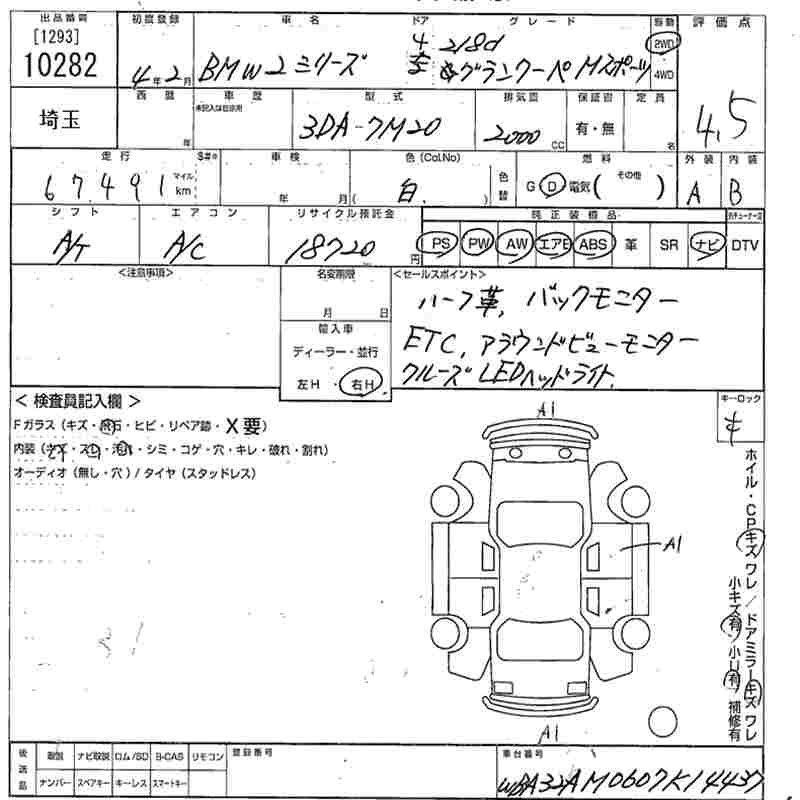 出品番号 初度登録 車名 ドア グレード 駆動 評価点
[1293]
10282
4年2月 BMW2シリーズ 4 218d 2WD
グランクーペ Mスポーツ 4WD
4.5
埼玉
西暦 車歴 型式 排気量 保証書 定員
未記入は自家用
年 3DA-7M20 2000 CC 有・無 名
走行 $#® 車検 色(Col.No) 燃料 外装 内装
67,491 マイル km 年 月 ( 白 ) 色替 G D 電気 ( その他 ) A B
シフト エアコン リサイクル預託金 純正装備品
A/T A/C 18720 円 PS PW AW エアB ABS 革 SR ナビ DTV
<注意事項> 名変期限 <セールスポイント>
月 日
ハーフ革, バックモニター
輸入車
ディーラー・並行
ETC, アラウンドビューモニター
左H・右H
クルーズ LEDヘッドライト
<検査員記入欄> キーロック
Fガラス(キズ・飛石・ヒビ・リペア跡・X要)
内装(キズ・スレ・汚れ・シミ・コゲ・穴・キレ・破れ・割れ)
オーディオ(無し・穴)/タイヤ(スタッドレス)
A1
A1
A1
ホイル・CPキズ ワレ/ドアミラーキズ ワレ
小キズ有/小U有/補修有
後送品 取説 ナビ取説 ロム/SD B-CAS リモコン
ナンバー スペアキー キーレス スマートキー
登録番号
車台番号
WBA32AM0607K14437